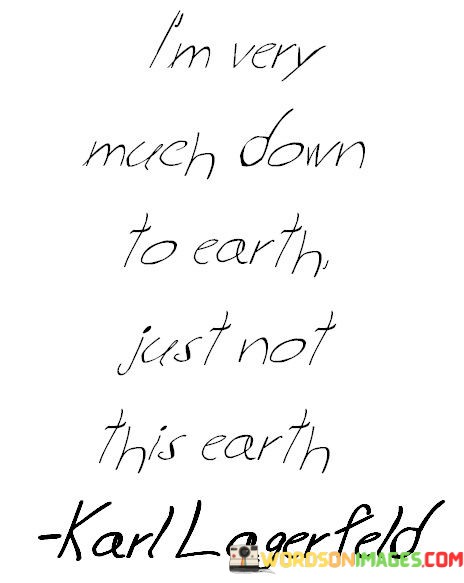 I'm very
much down
to earth,
just not
this earth
-Karl Lagerfeld
WORDSONIMAGES.COM